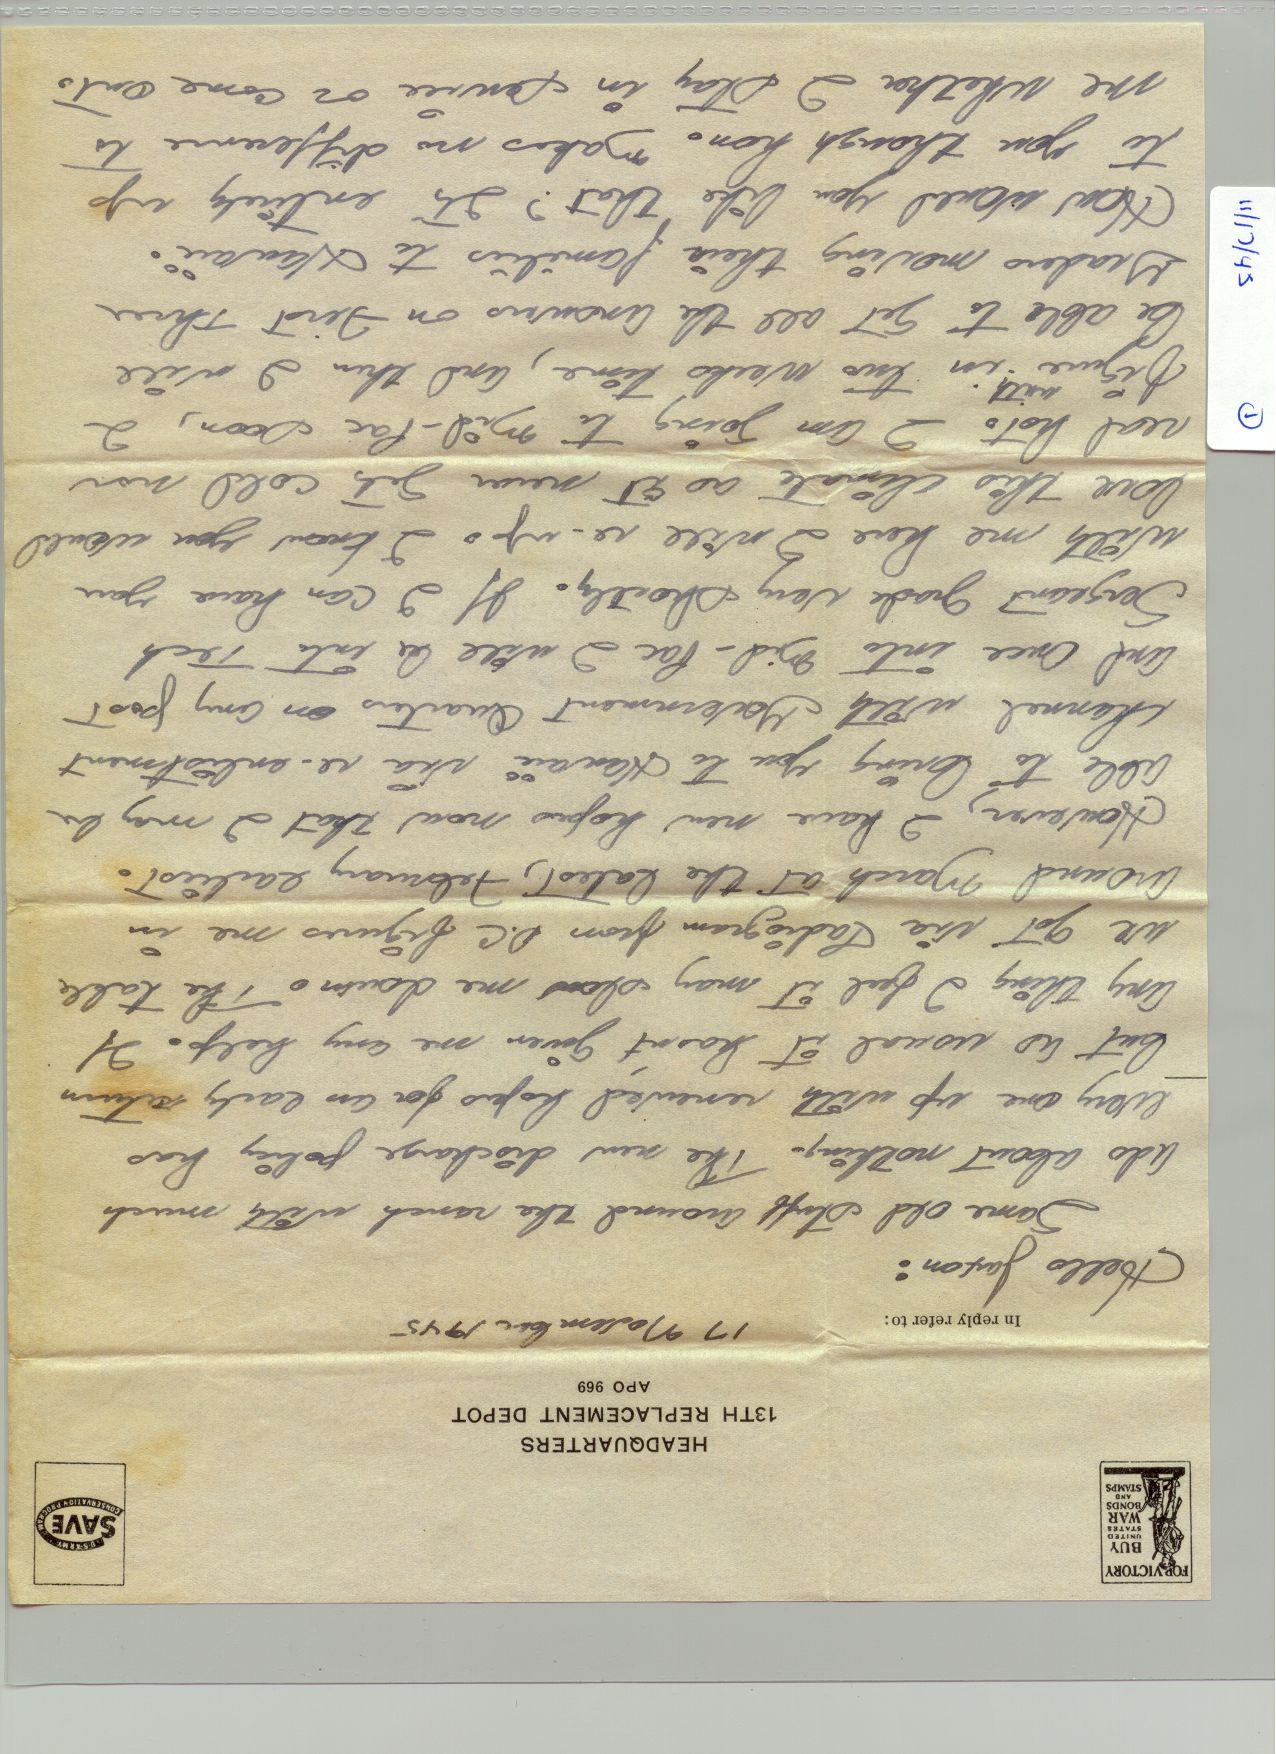 FOR VICTORY
BUY
UNITED
STATES
WAR
BONDS
AND
STAMPS
U·S·ARMY
SAVE
CONSERVATION PROGRAM
HEADQUARTERS
13TH REPLACEMENT DEPOT
APO 969
In reply refer to:
17 November 1945
Hello Jaxon:
Same old stuff around the ranch with much
ado about nothing. The new discharge policy has
every one up with renewed hopes for an early return
but as usual it hasnt given me any help. If
any thing I feel it may slow me down. The table
we got via Radiogram from D.C figures me in
around March at the latest, February earliest.
However, I have new hopes now that I may be
able to bring you to Hawaii via re-enlistment
channel with Government Quarters on any post
and once into Mid-Pac I will be into Tech
Sergeant grade very shortly. If I can have you
with me here I will re-up. I know you would
love this climate as it never gets cold nor
real hot. I am going to Mid-Pac soon, I
figure in with two weeks time, and then I will
be able to get all the answers on First Three
Graders moving their families to Hawaii.
How would you like that? Its entirely up
to you though hon. Makes no difference to
me whether I stay in service or come out.
11/17/45
1